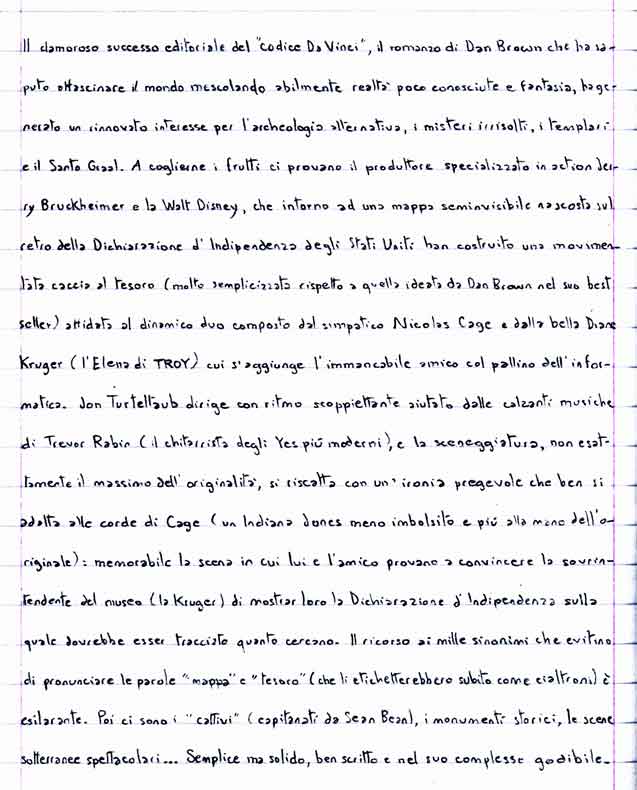 Il clamoroso successo editoriale del "Codice Da Vinci", il romanzo di Dan Brown che ha sa-
puto affascinare il mondo mescolando abilmente realtà poco conosciute e fantasia, ha ge-
nerato un rinnovato interesse per l'archeologia alternativa, i misteri irrisolti, i templari
e il Santo Graal. A coglierne i frutti ci provano il produttore specializzato in action Jer-
ry Bruckheimer e la Walt Disney, che intorno ad una mappa seminvisibile nascosta sul
retro della Dichiarazione d'Indipendenza degli Stati Uniti han costruito una movimen-
tata caccia al tesoro (molto semplicizzata rispetto a quella ideata da Dan Brown nel suo best
seller) affidata al dinamico duo composto dal simpatico Nicolas Cage e dalla bella Diane
Kruger (l'Elena di TROY) cui s'aggiunge l'immancabile amico col pallino dell'infor-
matica. Jon Turteltaub dirige con ritmo scoppiettante aiutato dalle calzanti musiche
di Trevor Rabin (il chitarrista degli Yes più moderni), e la sceneggiatura, non esat-
tamente il massimo dell'originalità, si riscatta con un'ironia pregevole che ben si
adatta alle corde di Cage (un Indiana Jones meno imbolsito e più alla mano dell'o-
riginale): memorabile la scena in cui lui e l'amico provano a convincere la sovrin-
tendente del museo (la Kruger) di mostrar loro la Dichiarazione d'Indipendenza sulla
quale dovrebbe esser tracciato quanto cercano. Il ricorso ai mille sinonimi che evitino
di pronunciare le parole "mappa" e "tesoro" (che li etichetterebbero subito come cialtroni) è
esilarante. Poi ci sono i "cattivi" (capitanati da Sean Bean), i monumenti storici, le scene
sotterranee spettacolari... Semplice ma solido, ben scritto e nel suo complesso godibile.